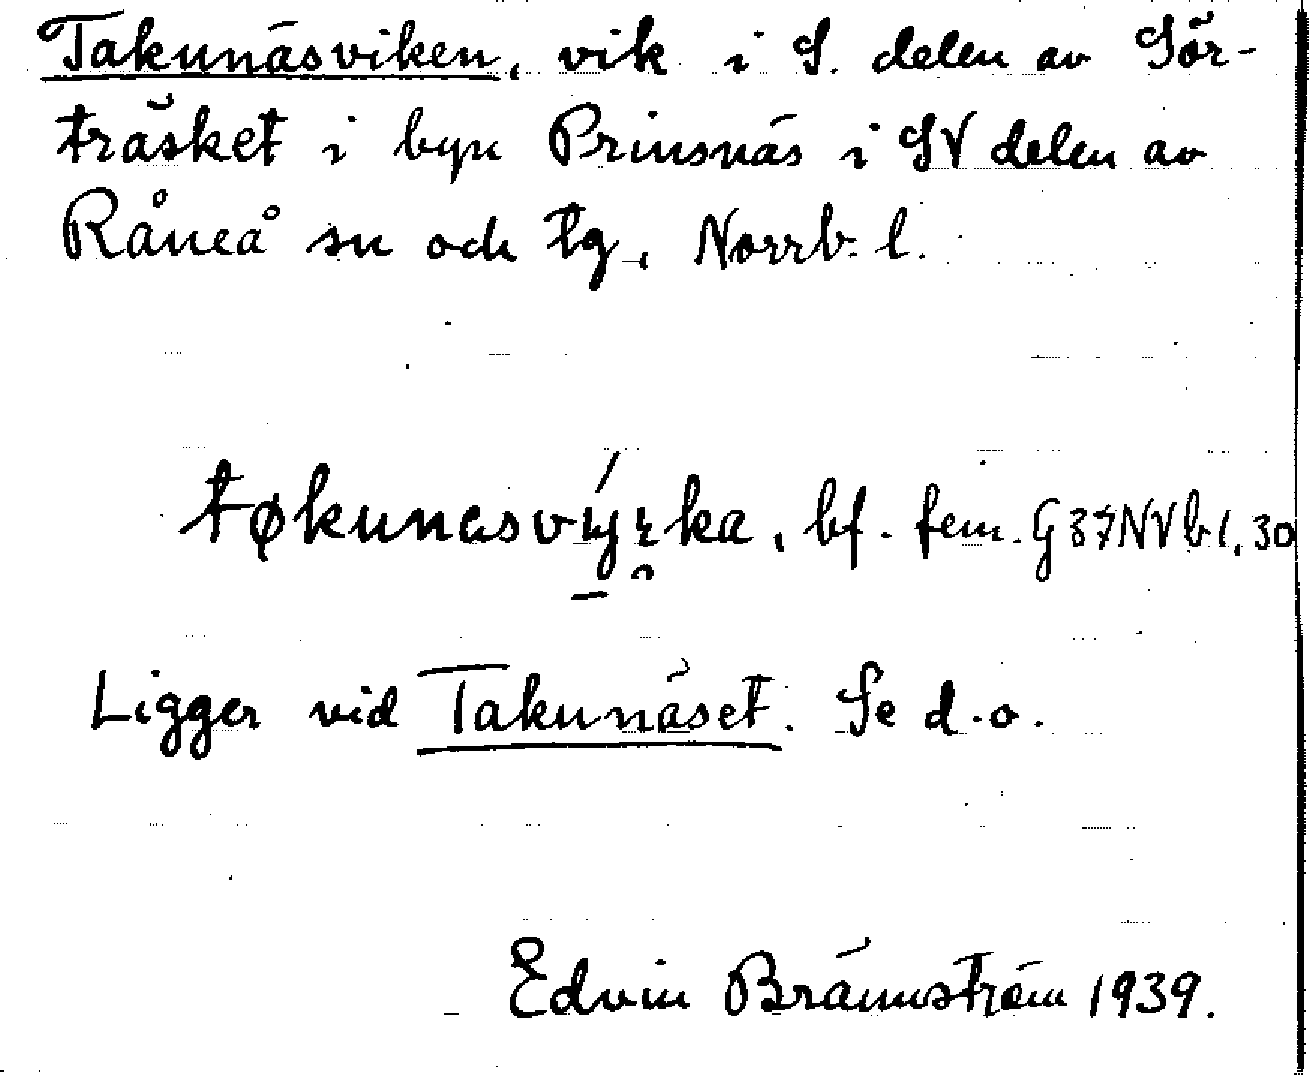 Takunäsviken, vik i S. delen av Sör-
träsket i byn Prinsnäs i SV delen av
Råneå sn och tg, Norrb. l.
bf. fem.
Ligger vid Takunäset. Se d.o.
Edvin Brännström 1939.